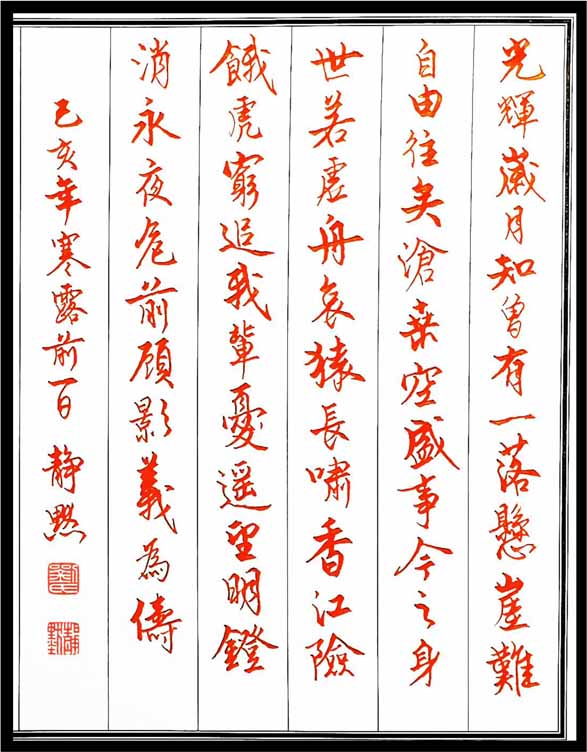 光輝歲月知曾有一落懸崖難
自由往矣滄桑空盛事今之身
世若虛舟哀猿長嘯香江險
餓虎窮追我輩憂遥望明鐙
消永夜危前顧影義為儔
己亥年寒露前一日 静默